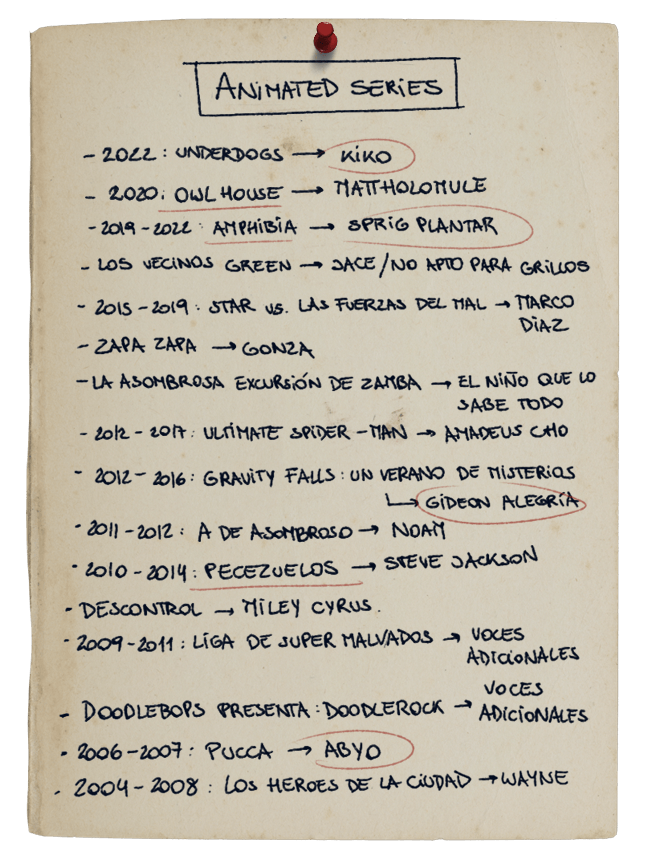 ANIMATED SERIES
- 2022: UNDERDOGS → KIKO
- 2020: OWL HOUSE → MATTHOLOMULE
- 2019-2022: AMPHIBIA → SPRIG PLANTAR
- LOS VECINOS GREEN → JACE/NO APTO PARA GRILLOS
- 2015-2019: STAR VS. LAS FUERZAS DEL MAL → MARCO
DIAZ
- ZAPA ZAPA → GONZA
- LA ASOMBROSA EXCURSIÓN DE ZAMBA → EL NIÑO QUE LO
SABE TODO
- 2012-2017: ULTIMATE SPIDER-MAN → AMADEUS CHO
- 2012-2016: GRAVITY FALLS: UN VERANO DE MISTERIOS
↳ GIDEON ALEGRÍA
- 2011-2012: A DE ASOMBROSO → NOAM
- 2010-2014: PECEZUELOS → STEVE JACKSON
- DESCONTROL → MILEY CYRUS.
- 2009-2011: LIGA DE SUPER MALVADOS → VOCES
ADICIONALES
- DOODLEBOPS PRESENTA: DOODLEROCK → VOCES
ADICIONALES
- 2006-2007: PUCCA → ABYO
- 2004-2008: LOS HEROES DE LA CIUDAD → WAYNE